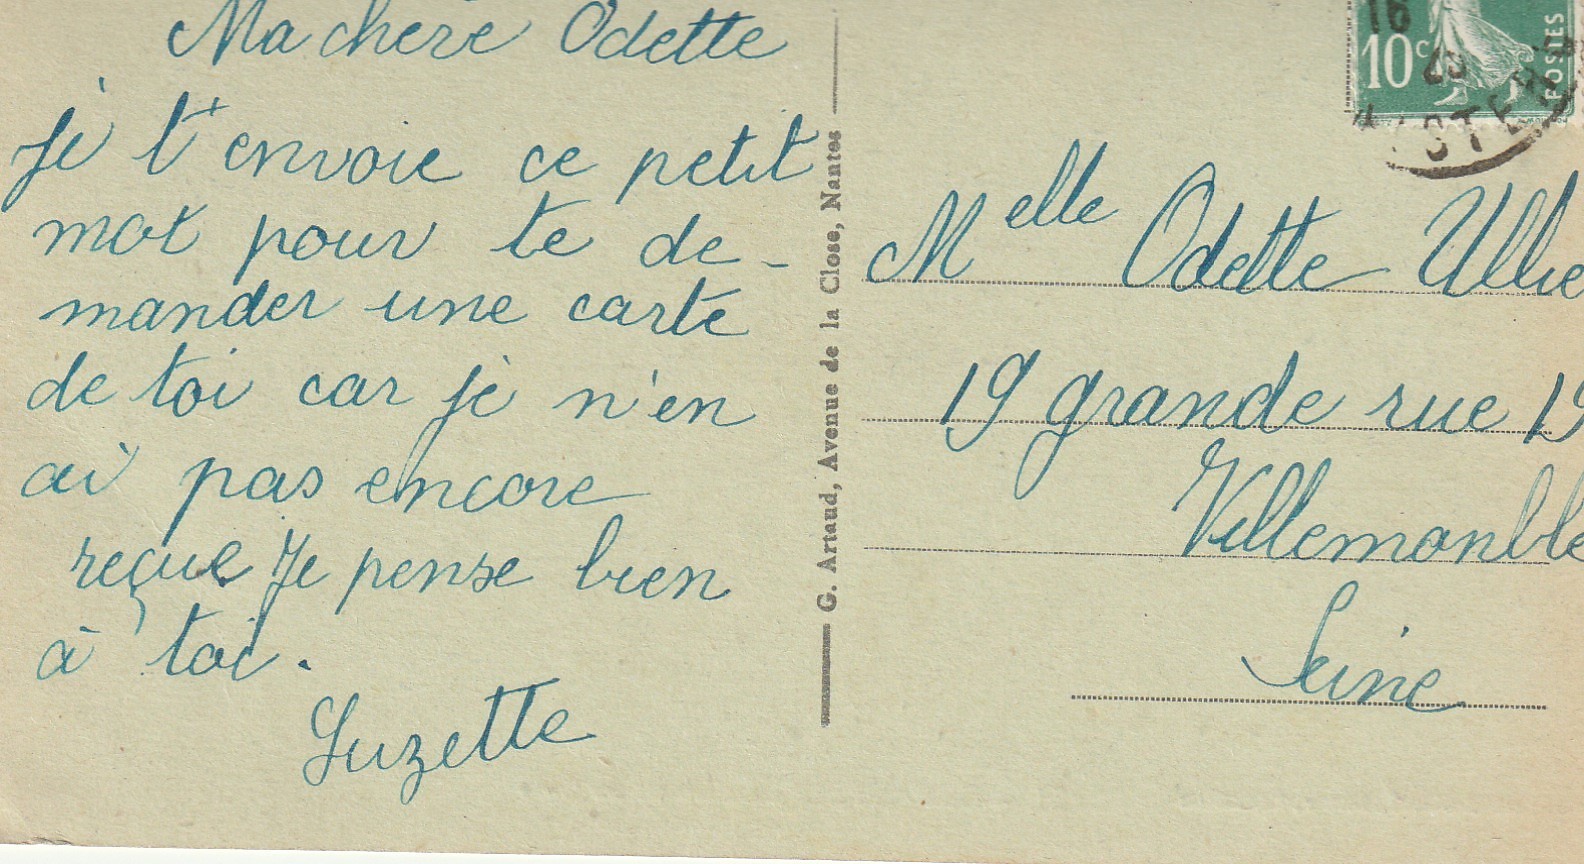 Ma chère Odette
je t'envoie ce petit
mot pour te de-
mander une carte
de toi car je n'en
ai pas encore
reçue Je pense bien
à toi.
Suzette
G. Artaud, Avenue de la Close, Nantes
16
10c
POSTES
Melle Odette Ullie
19 grande rue 19
Villemonble
Seine